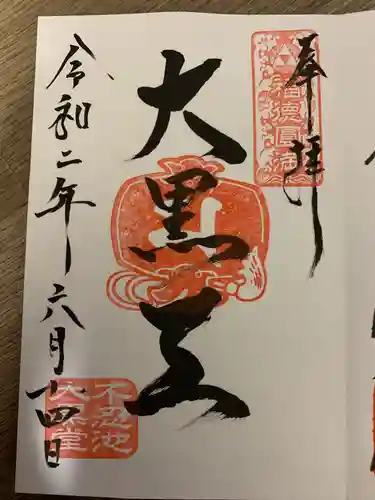 奉拝
福徳圓満
大黒天
令和二年六月十四日
不忍池
大黒堂